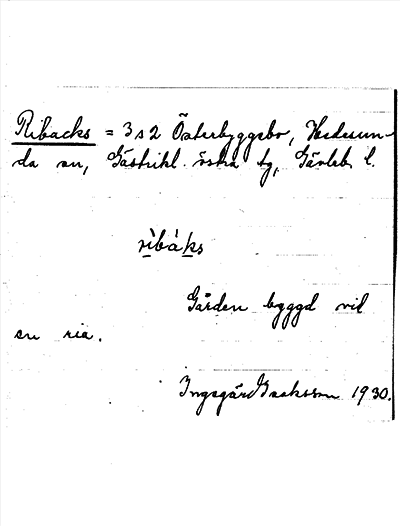 Ribacks = 3s2 Österbyggebo, Hedesun-
da sn, Gästrikl. östra tg, Gävleb. l.
ribaks
Gården byggd vid
en ria.
Ingegärd Isaksson 1930.